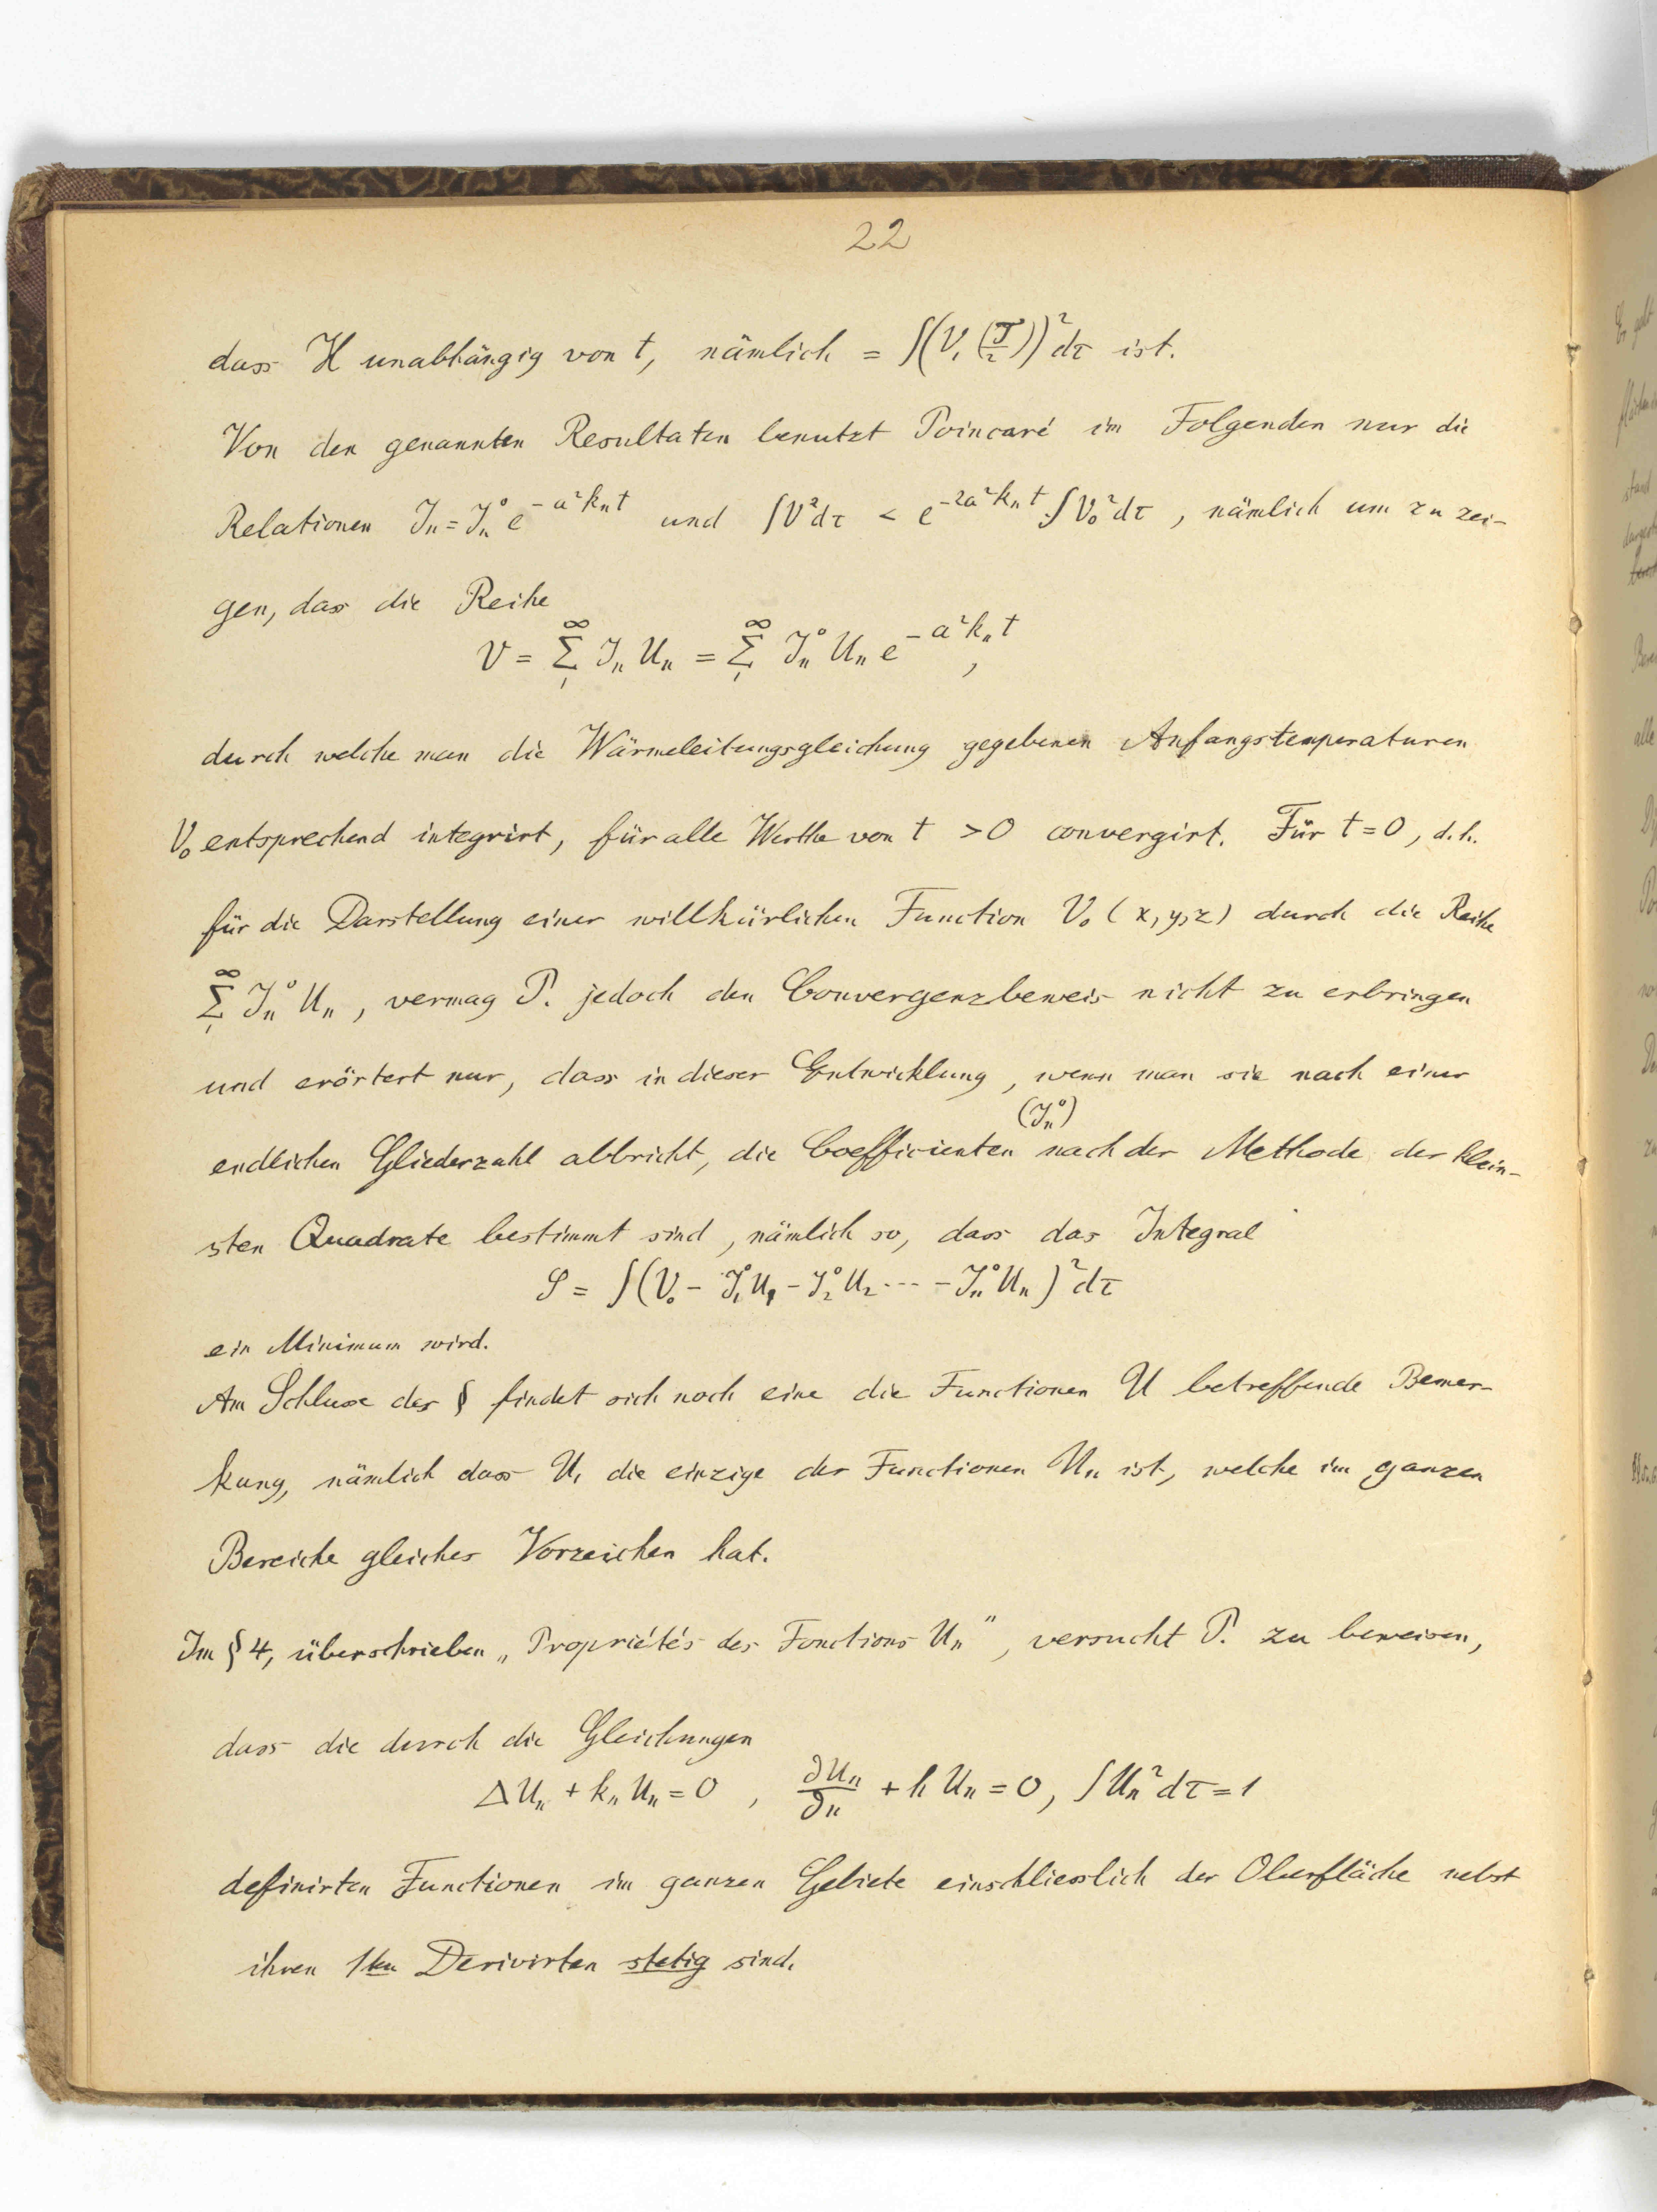 22
dass H unabhängig von t, nämlich = ∫(V₁(T/2))² dτ ist.
Von den genannten Resultaten benutzt Poincaré im Folgenden nur die
Relationen Jₙ = Jₙ⁰ e^{-a²kₙt} und ∫V²dτ < e^{-2a²kₙt} ∫V₀²dτ, nämlich um zu zei-
gen, dass die Reihe
V = Σ₁^∞ Jₙ Uₙ = Σ₁^∞ Jₙ⁰ Uₙ e^{-a²kₙt},
durch welche man die Wärmeleitungsgleichung gegebenen Anfangstemperaturen
V₀ entsprechend integrirt, für alle Werthe von t > 0 convergirt. Für t = 0, d.h.
für die Darstellung einer willkürlichen Function V₀ (x, y, z) durch die Reihe
Σ₁^∞ Jₙ⁰ Uₙ, vermag P. jedoch den Convergenzbeweis nicht zu erbringen
und erörtert nur, dass in dieser Entwicklung, wenn man sie nach einer
(Jₙ⁰)
endlichen Gliederzahl abbricht, die Coefficienten nach der Methode der klein-
sten Quadrate bestimmt sind, nämlich so, dass das Integral
S = ∫(V₀ - J₁⁰U₁ - J₂⁰U₂ ··· - Jₙ⁰Uₙ)² dτ
ein Minimum wird.
Am Schlusse des § findet sich noch eine die Functionen U betreffende Bemer-
kung, nämlich dass U₁ die einzige der Functionen Uₙ ist, welche im ganzen
Bereiche gleiches Vorzeichen hat.
Im § 4, überschrieben „Propriétés des Fonctions Uₙ", versucht P. zu beweisen,
dass die durch die Gleichungen
ΔUₙ + kₙUₙ = 0, ∂Uₙ/∂n + h Uₙ = 0, ∫Uₙ²dτ = 1
definirten Functionen im ganzen Gebiete einschliesslich der Oberfläche nebst
ihren 1ten Derivirten stetig sind.